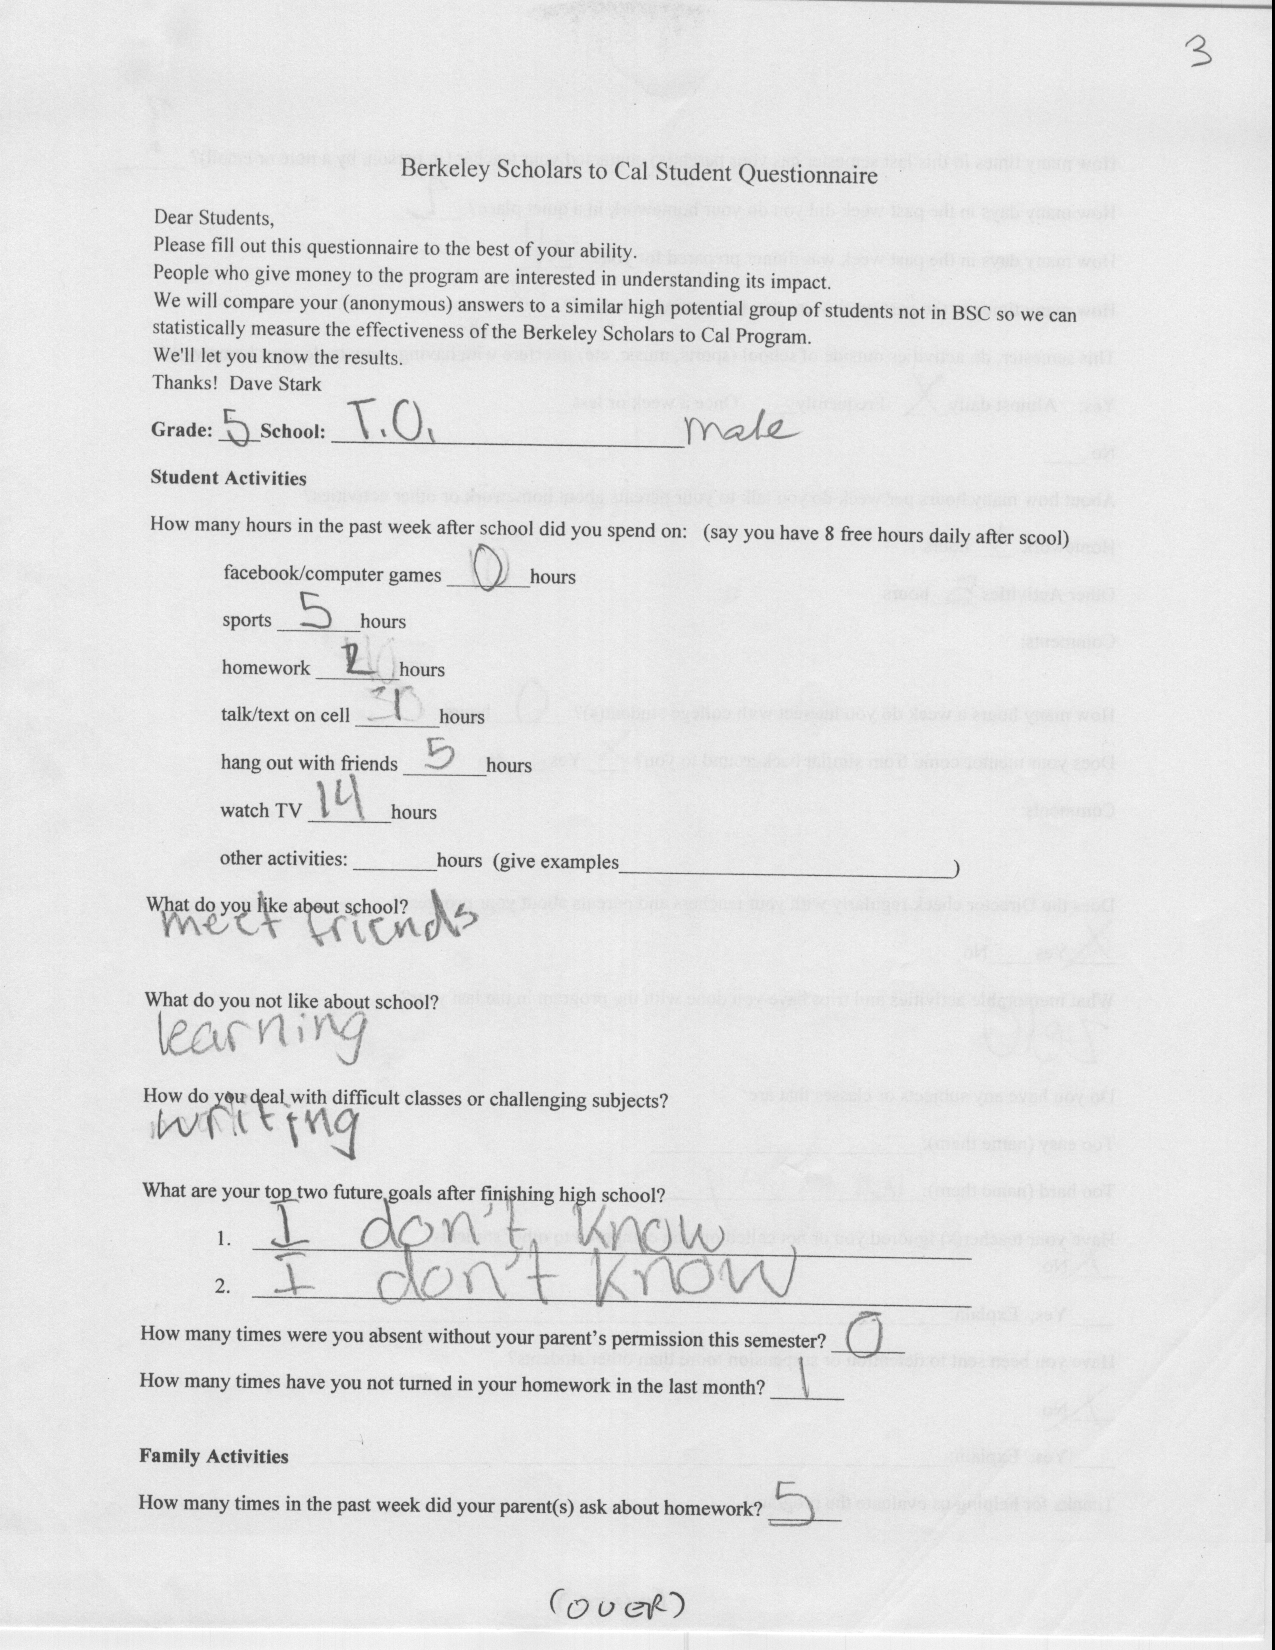 3
Berkeley Scholars to Cal Student Questionnaire
Dear Students,
Please fill out this questionnaire to the best of your ability.
People who give money to the program are interested in understanding its impact.
We will compare your (anonymous) answers to a similar high potential group of students not in BSC so we can
statistically measure the effectiveness of the Berkeley Scholars to Cal Program.
We'll let you know the results.
Thanks! Dave Stark
Grade: 5 School: T.O. male
Student Activities
How many hours in the past week after school did you spend on: (say you have 8 free hours daily after scool)
facebook/computer games 0 hours
sports 5 hours
homework 2 hours
talk/text on cell 1 hours
hang out with friends 5 hours
watch TV 14 hours
other activities: ______ hours (give examples______)
What do you like about school?
meet friends
What do you not like about school?
learning
How do you deal with difficult classes or challenging subjects?
writing
What are your top two future goals after finishing high school?
1. I don't know
2. I don't know
How many times were you absent without your parent's permission this semester? 0
How many times have you not turned in your homework in the last month? 1
Family Activities
How many times in the past week did your parent(s) ask about homework? 5
(OVER)